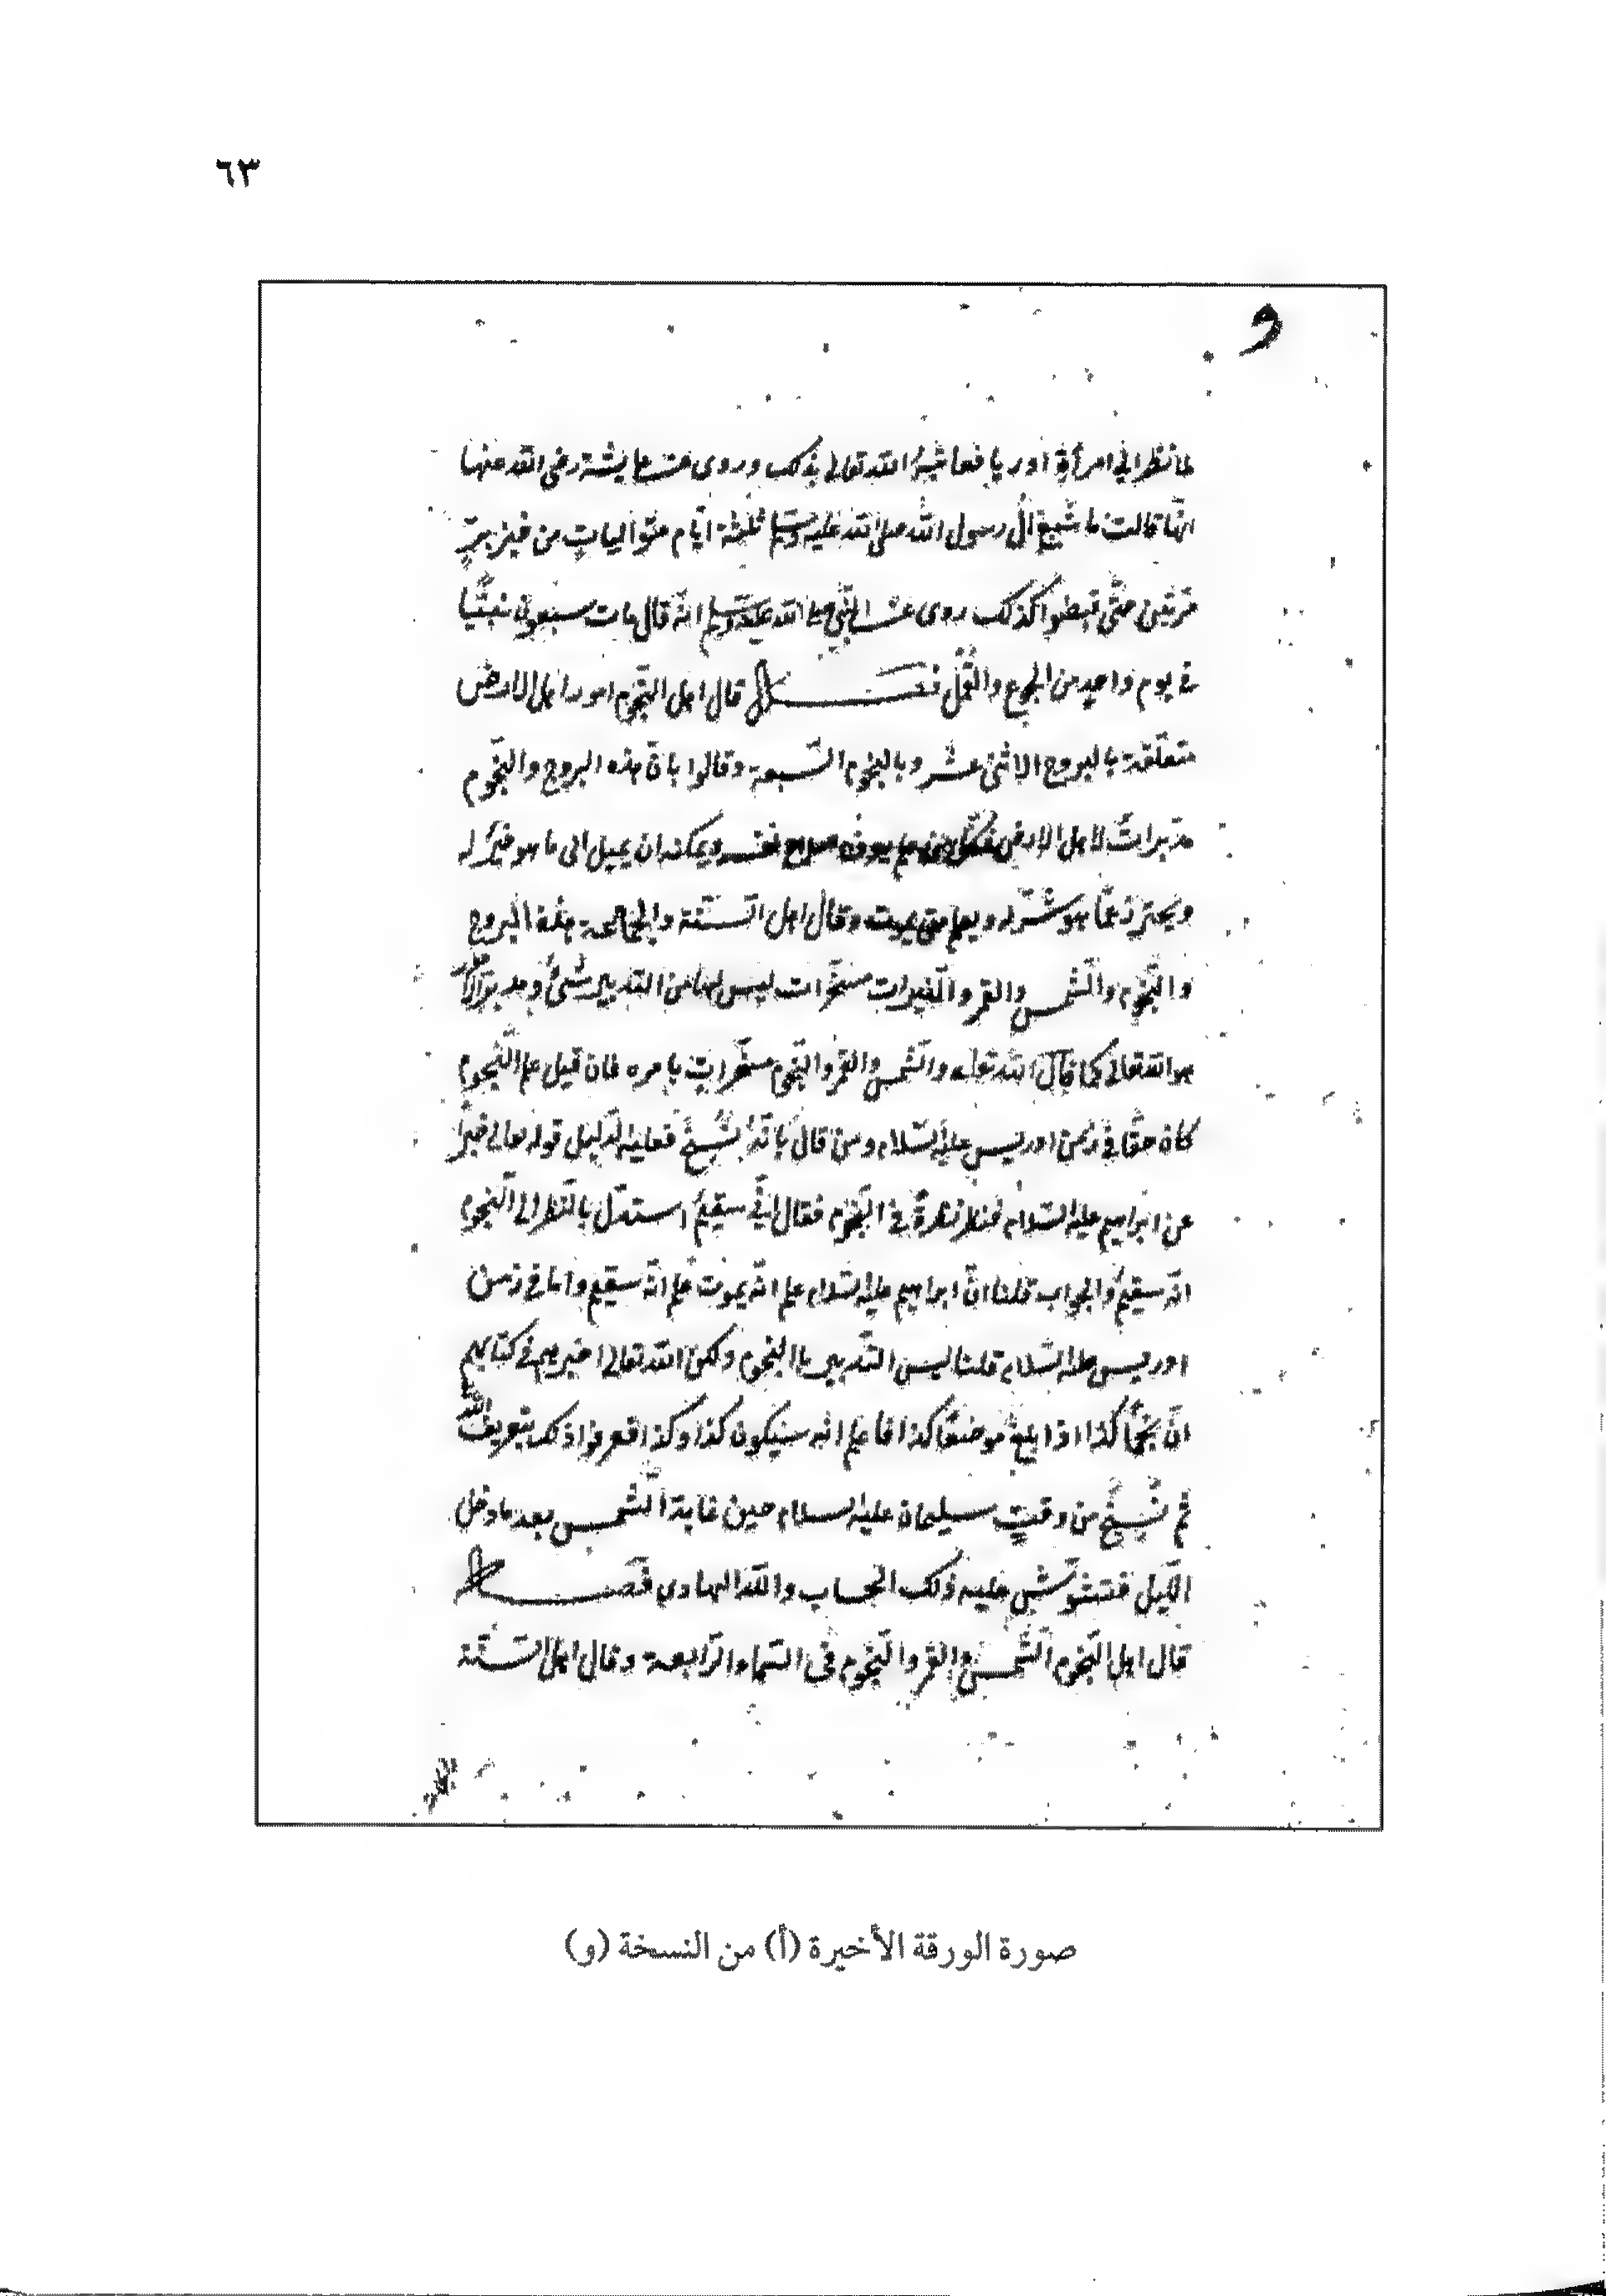 ٦٣
و
لما نظر الى امرأة اوريا فعاتبه الله تعالى بذلك وروى عن عايشة رضى الله عنها
انّها قالت ما شبع ال رسول الله صلى الله عليه وسلم ثلثة ايّام متواليات من خبز برّ
مرّتين حتّى قبضوا كذلك روى عن النّبى صلى الله عليه وسلم انّه قال مات سبعون نبيّا
فى يوم واحد من الجوع والقمّل فصل قال اهل النّجوم امور اهل الارض
متعلّقة بالبروج الاثنى عشر وبالنجوم السّبعة وقالوا بانّ هذه البروج والنّجوم
مدّبرات لاهل الارض فكل من يعرف نفسه ويمكنه ان يميل الى ما هو خير له
ويحترز عمّا هو شرّ له ويعلم متى يموت وقال اهل السّنّة والجماعة هذه البروج
والنّجوم والشّمس والقمر والمغيرات مسخّرات ليس لها من التدبير شئ ومدبر
هو الله تعالى كما قال الله تعالى والشّمس والقمر والنّجوم مسخّرات بامره فان قيل علم النّجوم
كان حقّا فى زمن ادريس عليه السّلام ومن قال بانّه نسخ فعليه الدّليل قوله تعالى خبرا
عن ابراهيم عليه السّلام فنظر نظرة فى النّجوم فقال انّى سقيم استدلّ بالنّظر الى النّجوم
انّه سقيم والجواب قلنا انّ ابراهيم عليه السّلام علم انّه يموت علم انّه سقيم واما فى زمن
ادريس عليه السّلام قلنا ليس التّدبير باالنجوم ولكن الله تعالى اخبرهم فى كتابهم
انّ نجمًا كذا اذا بلغ موضعًا كذا فاعلم انّه سيكون كذا وكذا فعرفوا ذلك بتعريف الله
ثم نسخ من وقت سليمان عليه السلام حين غابة الشّمس بعد ما دخل
اللّيل فتشوّش عليه ذلك الحساب والله الهادى فصل
قال اهل النّجوم الشّمس والقمر والنّجوم فى السّماء الرّابعة وقال اهل السّنّة
صورة الورقة الأخيرة (أ) من النسخة (و)